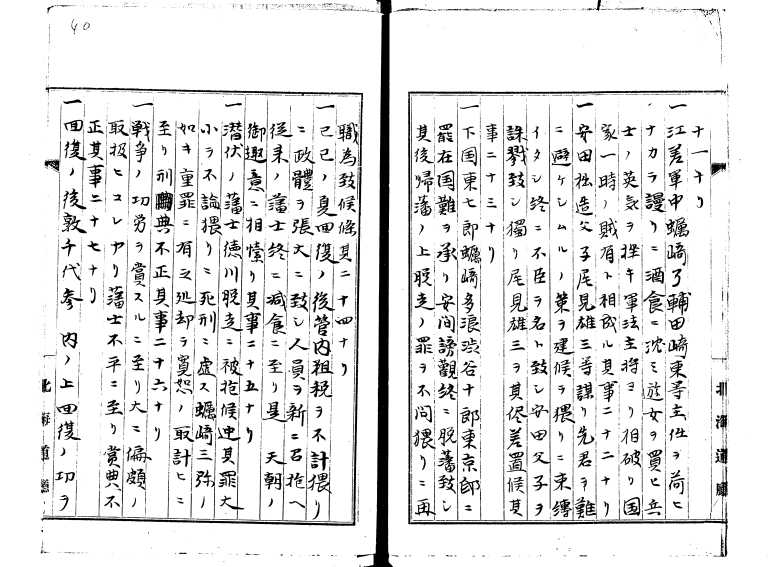 40
十一ナリ
一江差軍中蠣崎乃輔田崎東等主任ヲ荷ヒ
ナカラ謾リニ酒食ニ沈ミ遊女ヲ買ヒ兵
士ノ英気ヲ挫キ軍法主将ヨリ相破リ国
家一時ノ賊有ト相成ル其事二十二ナリ
一安田拙造父子尾見雄三等謀リ先君ヲ難
ニ避ケシムルノ策ヲ建候ヲ猥リニ束縛
イタシ終ニ不臣ヲ名ト致シ安田父子ヲ
誅戮致シ獨リ尾見雄三ヲ其侭差置候其
事二十三ナリ
一下国東七郎蠣崎多浪渋谷十郎東京邸ニ
罷在国難ヲ承リ安閑謗觀終ニ脱藩致シ
其後帰藩ノ上脱走ノ罪ヲ不問猥リニ再
職為致候條其二十四ナリ
一己巳ノ夏回復ノ後管内租税ヲ不計猥リ
ニ政體ヲ張大ニ致シ人員ヲ新ニ召抱ヘ
従来ノ藩士終ニ減食ニ至リ是 天朝ノ
御趣意ニ相悖リ其事二十五ナリ
一潜伏ノ藩士徳川脱走ニ被抱候迚其罪大
小ヲ不論猥リニ死刑ニ處ス蠣崎三弥ノ
如キ重罪ニ有之処却ヲ寛恕ノ取計ヒニ
至リ刑典不正其事二十六ナリ
一戦争ノ功労ヲ賞スルニ至リ大ニ偏頗ノ
取扱ヒコレアリ藩士不平ニ至リ賞典不
正其事二十七ナリ
一回復ノ後敦千代参 内ノ上回復ノ功ヲ
北海道廳
北海道廳